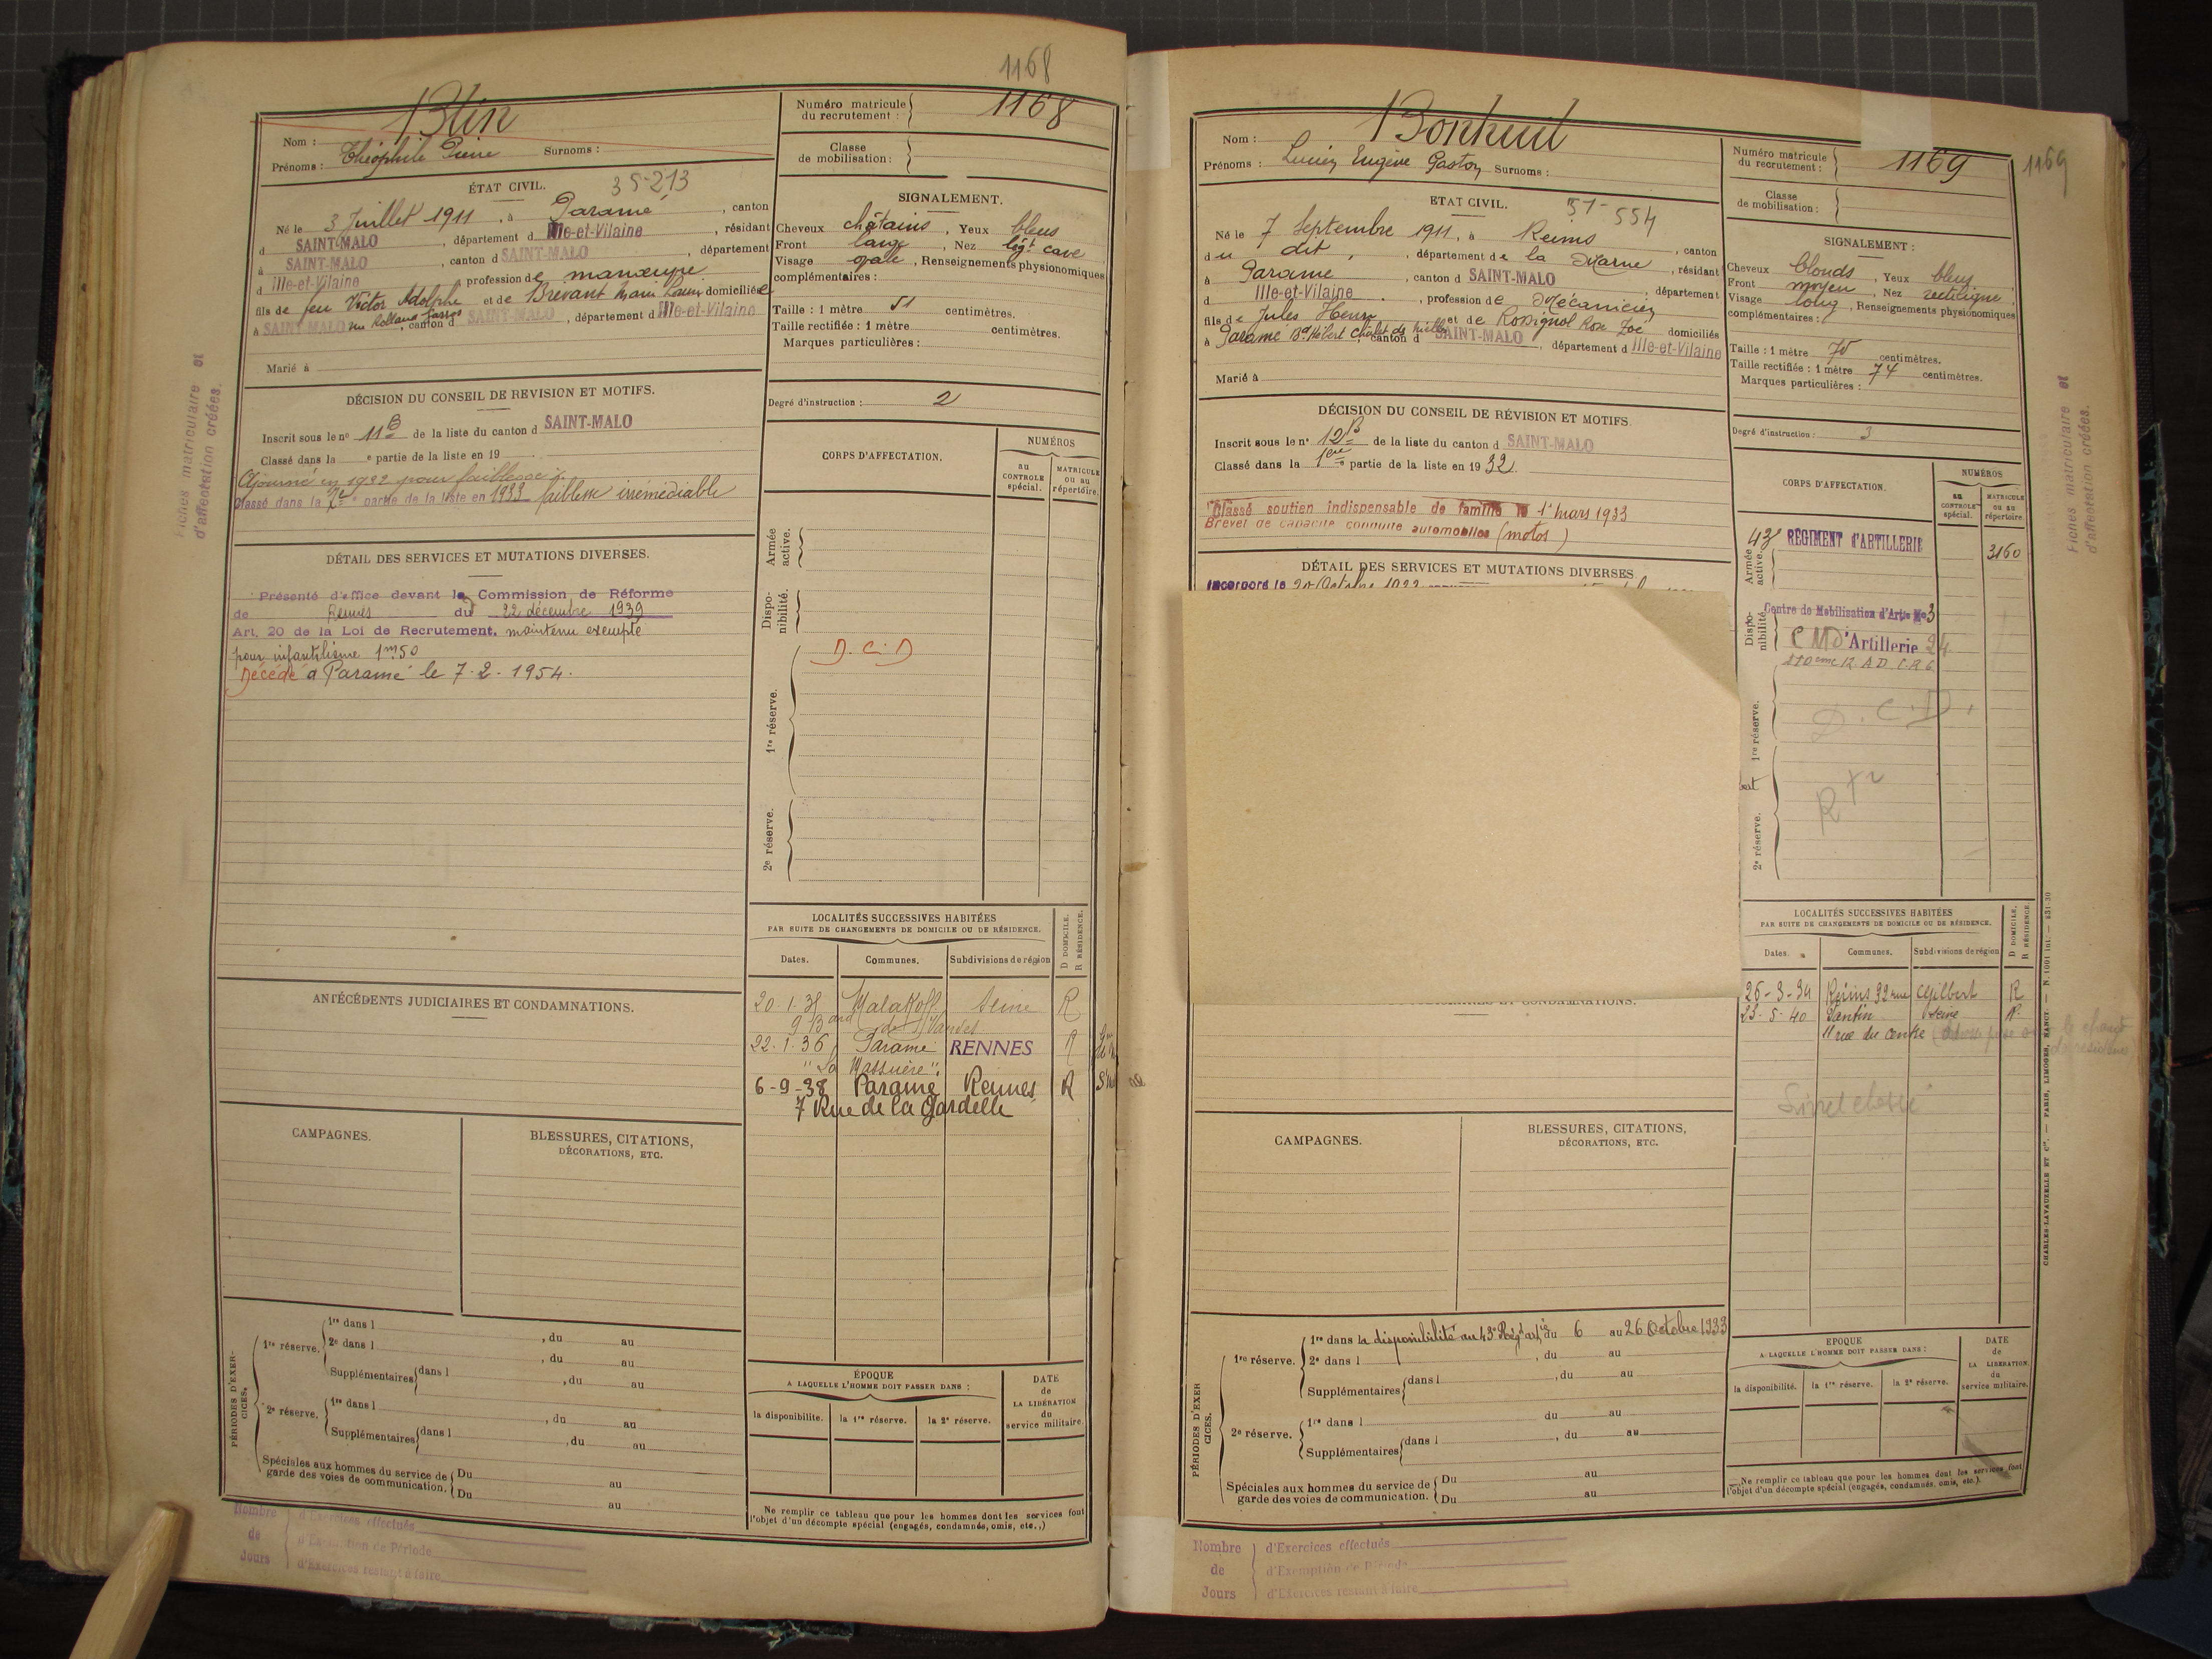 1168
Blin
Nom :
Prénoms : Théophile Pierre Surnoms :
Numéro matricule du recrutement : 1168
Classe de mobilisation :
ÉTAT CIVIL. 35-213
Né le 3 Juillet 1911, à Paramé, canton
d SAINT-MALO, département d Ille-et-Vilaine, résidant
à SAINT-MALO, canton d SAINT-MALO, département
d Ille-et-Vilaine, profession de manœuvre
fils de feu Victor Adolphe et de Brévant Marie domiciliés
à SAINT-MALO rue Rolland, canton d SAINT-MALO, département d Ille-et-Vilaine
Marié à
SIGNALEMENT.
Cheveux châtains, Yeux bleus
Front large, Nez légt cave
Visage ovale, Renseignements physionomiques
complémentaires :
Taille : 1 mètre 51 centimètres.
Taille rectifiée : 1 mètre centimètres.
Marques particulières :
Degré d'instruction : 2
DÉCISION DU CONSEIL DE REVISION ET MOTIFS.
Inscrit sous le no 11B de la liste du canton d SAINT-MALO
Classé dans la e partie de la liste en 19
Ajourné en 1932 pour faiblesse
Classé dans la 2e partie de la liste en 1933 faiblesse irrémédiable
DÉTAIL DES SERVICES ET MUTATIONS DIVERSES.
Présenté d'office devant la Commission de Réforme
de Rennes du 22 décembre 1939
Art. 20 de la Loi de Recrutement. maintenu exempté
pour infantilisme 1m50
Décédé à Paramé le 7.2.1954.
CORPS D'AFFECTATION.
NUMÉROS
au CONTROLE spécial.
MATRICULE ou au répertoire.
Armée active.
Disponibilité.
1re réserve.
D.C.D
2e réserve.
LOCALITÉS SUCCESSIVES HABITÉES
PAR SUITE DE CHANGEMENTS DE DOMICILE OU DE RÉSIDENCE.
D DOMICILE.
R RÉSIDENCE.
Dates. Communes. Subdivisions de région
Malakoff Seine R
22.1.36 Paramé RENNES R
6-9-38 Paramé Rennes R
7 Rue de la Gardelle
ANTÉCÉDENTS JUDICIAIRES ET CONDAMNATIONS.
CAMPAGNES.
BLESSURES, CITATIONS,
DÉCORATIONS, ETC.
PÉRIODES D'EXERCICES.
1re réserve.
1re dans l , du au
2e dans l , du au
Supplémentaires dans l , du au
2e réserve.
1re dans l , du au
Supplémentaires dans l , du au
Spéciales aux hommes du service de garde des voies de communication.
Du au
Du au
ÉPOQUE
A LAQUELLE L'HOMME DOIT PASSER DANS :
la disponibilité. la 1re réserve. la 2e réserve.
DATE de LA LIBÉRATION du service militaire.
Ne remplir ce tableau que pour les hommes dont les services font
l'objet d'un décompte spécial (engagés, condamnés, omis, etc.,)
Nombre de Jours
d'Exercices effectués
d'Exemption de Période
d'Exercices restant à faire
Fiches matriculaire et
d'affectation créées.
Bonheuil
Nom :
Prénoms : Lucien Eugène Gaston Surnoms :
Numéro matricule du recrutement : 1169
1169
Classe de mobilisation :
ETAT CIVIL. 51-554
Né le 7 Septembre 1911, à Reims, canton
du dit, département de la Marne, résidant
à Paramé, canton d SAINT-MALO, département
d Ille-et-Vilaine, profession de Mécanicien
fils de Jules Henri et de Rossignol Rose Zoé domiciliés
à Paramé Bd Hébert Chalet, canton d SAINT-MALO, département d Ille-et-Vilaine
Marié à
SIGNALEMENT :
Cheveux blonds, Yeux bleus
Front moyen, Nez rectiligne
Visage long, Renseignements physionomiques
complémentaires :
Taille : 1 mètre 70 centimètres.
Taille rectifiée : 1 mètre 74 centimètres.
Marques particulières :
Degré d'instruction : 3
DÉCISION DU CONSEIL DE RÉVISION ET MOTIFS.
Inscrit sous le no 12B de la liste du canton d SAINT-MALO
Classé dans la 1ère partie de la liste en 1932.
Classé soutien indispensable de famille le 1er mars 1933
Brevet de capacité conduite automobiles (motos)
DÉTAIL DES SERVICES ET MUTATIONS DIVERSES.
Incorporé le 20 Octobre
CORPS D'AFFECTATION.
NUMÉROS
au CONTROLE spécial.
MATRICULE ou au répertoire.
Armée active.
43e RÉGIMENT d'ARTILLERIE 3160
Disponibilité.
Centre de Mobilisation d'Artie No 3
C M d'Artillerie 24
1re réserve.
D.C.D.
2e réserve.
LOCALITÉS SUCCESSIVES HABITÉES
PAR SUITE DE CHANGEMENTS DE DOMICILE OU DE RÉSIDENCE.
D DOMICILE.
R RÉSIDENCE.
Dates. Communes. Subdivisions de région
26-3-34 Reims 32 rue Gilbert R
23-5-40 Pantin Seine R.
11 rue du Centre
CAMPAGNES.
BLESSURES, CITATIONS,
DÉCORATIONS, ETC.
PÉRIODES D'EXERCICES.
1re réserve.
1re dans la disponibilité au 43e Régt artie du 6 au 26 Octobre 1933
2e dans l , du au
Supplémentaires dans l , du au
2e réserve.
1re dans l du au
Supplémentaires dans l , du au
Spéciales aux hommes du service de garde des voies de communication.
Du au
Du au
EPOQUE
A LAQUELLE L'HOMME DOIT PASSER DANS :
la disponibilité. la 1re réserve. la 2e réserve.
DATE de LA LIBÉRATION du service militaire.
Ne remplir ce tableau que pour les hommes dont les services font
l'objet d'un décompte spécial (engagés, condamnés, omis, etc.).
Nombre de Jours
d'Exercices effectués
d'Exemption de Période
d'Exercices restant à faire
Fiches matriculaire et
d'affectation créées.
CHARLES-LAVAUZELLE ET Cie. — PARIS, LIMOGES, NANCY.